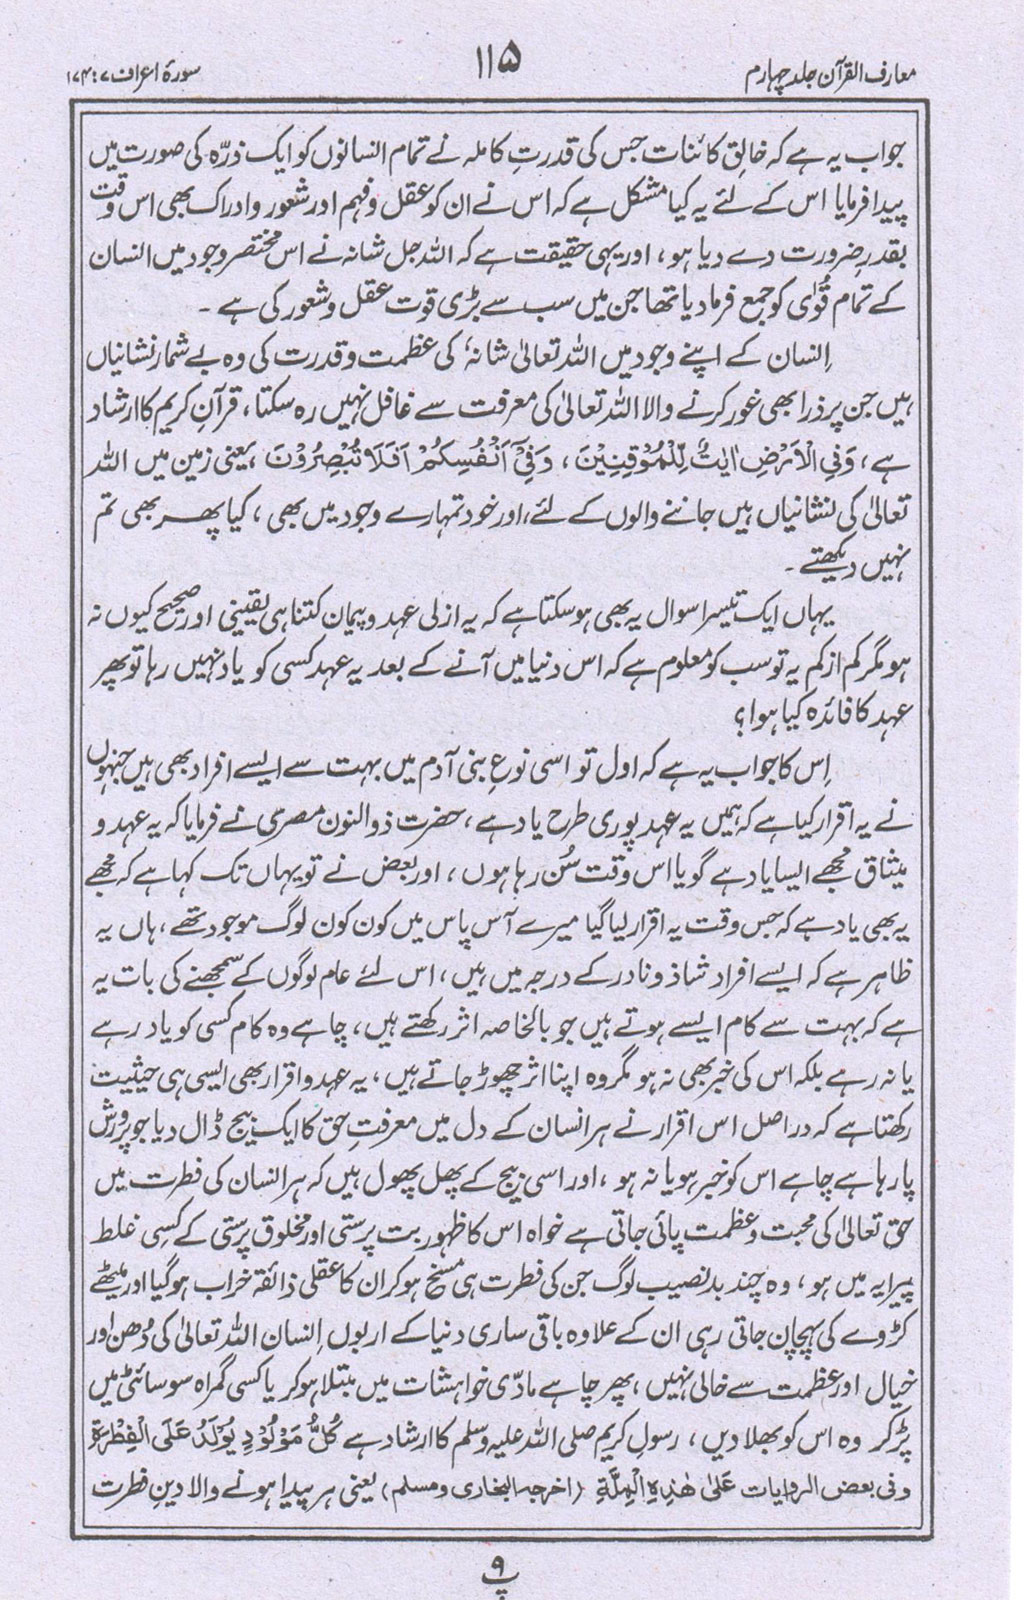 معارف القرآن جلد چہارم
۱۱۵
سورۂ اعراف ۷ : ۱۷۴
جواب یہ ہے کہ خالقِ کائنات جس کی قدرتِ کاملہ نے تمام انسانوں کو ایک ذرّہ کی صورت میں
پیدا فرمایا اس کے لئے یہ کیا مشکل ہے کہ اس نے ان کو عقل و فہم اور شعور و ادراک بھی اس وقت
بقدرِ ضرورت دے دیا ہو، اور یہی حقیقت ہے کہ اللہ جل شانہ نے اس مختصر وجود میں انسان
کے تمام قُوٰی کو جمع فرما دیا تھا جن میں سب سے بڑی قوت عقل و شعور کی ہے ۔
اِنسان کے اپنے وجود میں اللہ تعالیٰ شانہ، کی عظمت و قدرت کی وہ بے شمار نشانیاں
ہیں جن پر ذرا بھی غور کرنے والا اللہ تعالیٰ کی معرفت سے غافل نہیں رہ سکتا، قرآن کریم کا ارشاد
ہے، وَفِی الْاَرْضِ اٰیٰتٌ لِّلْمُوْقِنِیْنَ ، وَفِیْٓ اَنْفُسِکُمْ اَفَلَا تُبْصِرُوْنَ، یعنی زمین میں اللہ
تعالیٰ کی نشانیاں ہیں جاننے والوں کے لئے، اور خود تمہارے وجود میں بھی، کیا پھر بھی تم
نہیں دیکھتے ۔
یہاں ایک تیسرا سوال یہ بھی ہو سکتا ہے کہ یہ ازلی عہد و پیمان کتنا ہی یقینی اور صحیح کیوں نہ
ہو مگر کم از کم یہ تو سب کو معلوم ہے کہ اس دنیا میں آنے کے بعد یہ عہد کسی کو یاد نہیں رہا تو پھر
عہد کا فائدہ کیا ہوا؟
اِس کا جواب یہ ہے کہ اول تو اسی نوعِ بنی آدم میں بہت سے ایسے افراد بھی ہیں جنہوں
نے یہ اقرار کیا ہے کہ ہمیں یہ عہد پوری طرح یاد ہے، حضرت ذوالنون مصری نے فرمایا کہ یہ عہد و
میثاق مجھے ایسا یاد ہے گویا اس وقت سُن رہا ہوں، اور بعض نے تو یہاں تک کہا ہے کہ مجھے
یہ بھی یاد ہے کہ جس وقت یہ اقرار لیا گیا میرے آس پاس میں کون کون لوگ موجود تھے، ہاں یہ
ظاہر ہے کہ ایسے افراد شاذ و نادر کے درجہ میں ہیں، اس لئے عام لوگوں کے سمجھنے کی بات یہ
ہے کہ بہت سے کام ایسے ہوتے ہیں جو بالخاصہ اثر رکھتے ہیں، چاہے وہ کام کسی کو یاد رہے
یا نہ رہے بلکہ اس کی خبر بھی نہ ہو مگر وہ اپنا اثر چھوڑ جاتے ہیں، یہ عہد و اقرار بھی ایسی ہی حیثیت
رکھتا ہے کہ در اصل اس اقرار نے ہر انسان کے دل میں معرفتِ حق کا ایک بیج ڈال دیا جو پرورش
پا رہا ہے چاہے اس کو خبر ہو یا نہ ہو، اور اسی بیج کے پھل پھول ہیں کہ ہر انسان کی فطرت میں
حق تعالیٰ کی محبت و عظمت پائی جاتی ہے خواہ اس کا ظہور بت پرستی اور مخلوق پرستی کے کسِی غلط
پیرایہ میں ہو، وہ چند بدنصیب لوگ جن کی فطرت ہی مسخ ہو کر ان کا عقلی ذائقہ خراب ہوگیا اور میٹھے
کڑوے کی پہچان جاتی رہی ان کے علاوہ باقی ساری دنیا کے اربوں اِنسان اللہ تعالیٰ کی دُھن اور
خیال اور عظمت سے خالی نہیں، پھر چاہے مادّی خواہشات میں مبتلا ہو کر یا کسی گمراہ سوسائٹی میں
پڑ کر وہ اس کو بھلا دیں، رسولِ کریم صلی اللہ علیہ وسلم کا ارشاد ہے کُلُّ مَوْلُوْدٍ یُوْلَدُ عَلَی الْفِطْرَۃِ
وفی بعض الروایات عَلٰی ھٰذِہِ الْمِلَّۃِ (اخرجہ البخاری ومسلم) یعنی ہر پیدا ہونے والا دینِ فطرت
۹
پ